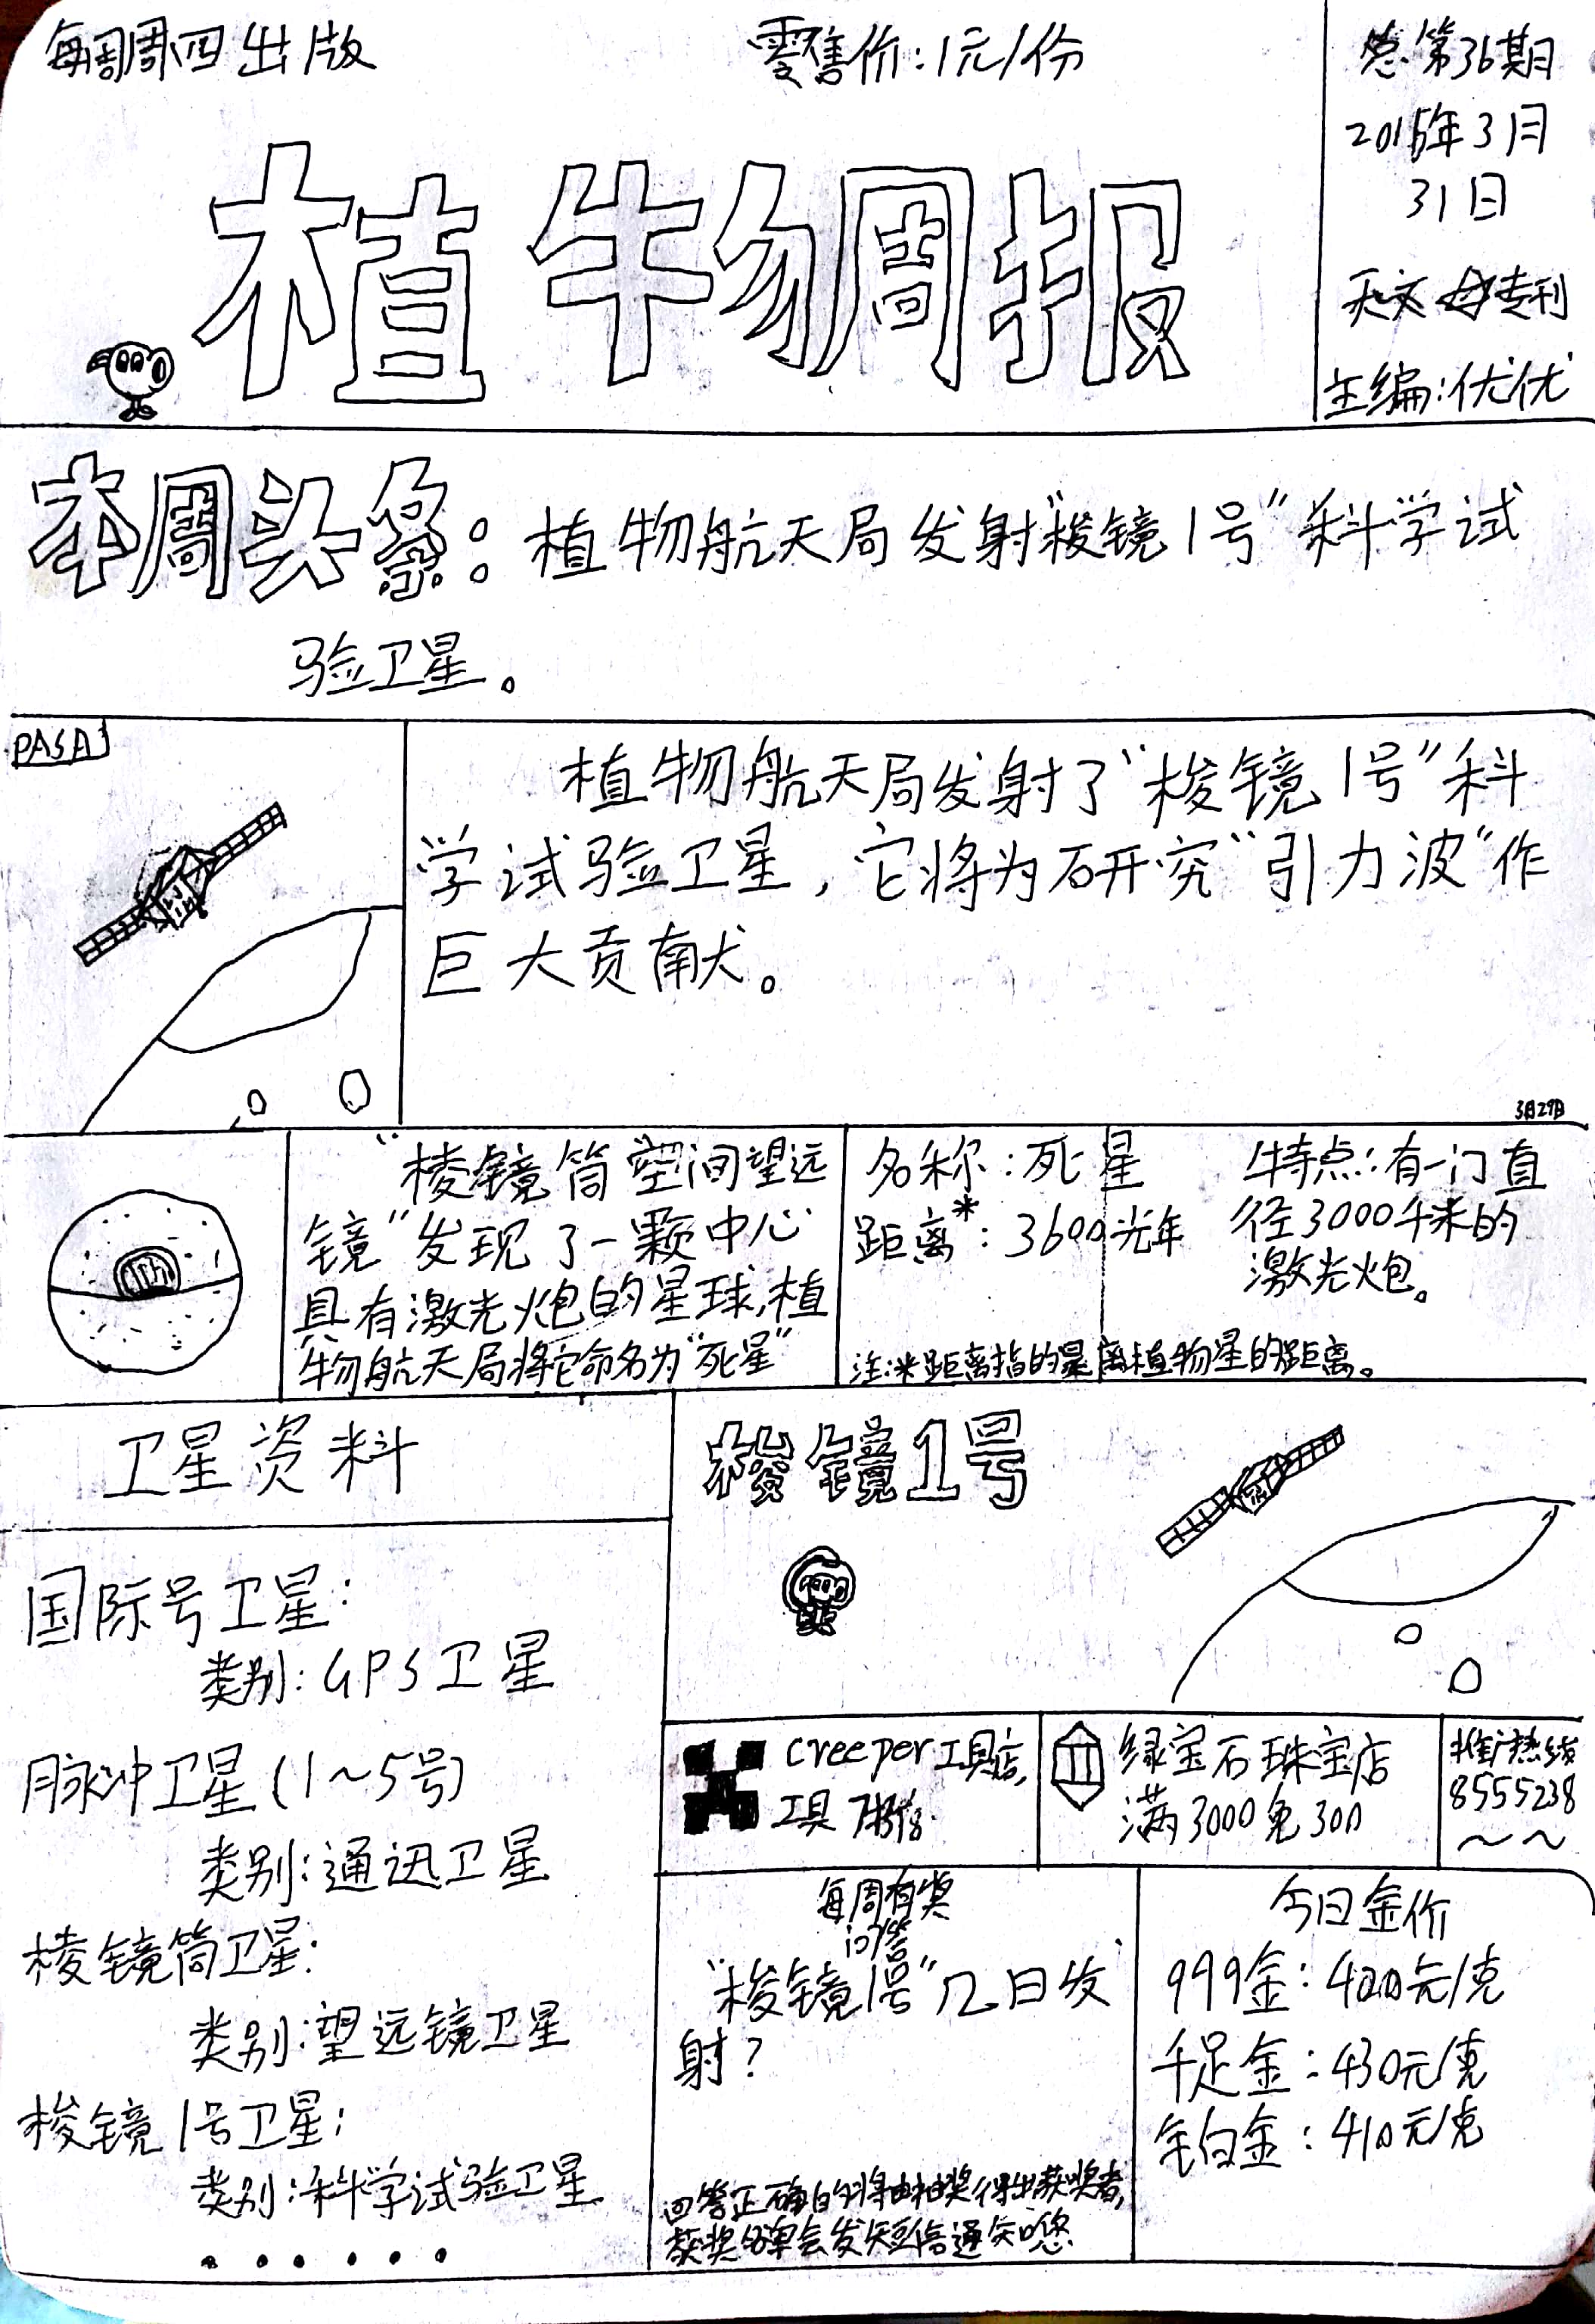 每周周四出版
零售价:1元/份
总第36期
2016年3月
31日
天文专刊
主编:优优
植物周报
本周头条:植物航天局发射“梭镜1号”科学试
验卫星。
PASA
植物航天局发射了“梭镜1号”科
学试验卫星,它将为研究“引力波”作
巨大贡献。
3月29日
“棱镜筒空间望远
镜”发现了一颗中心
具有激光炮的星球,植
物航天局将它命名为“死星”
名称:死星
距离*:3600光年
特点:有一门直
径3000千米的
激光炮。
注:*距离指的是离植物星的距离。
卫星资料
国际号卫星:
类别:GPS卫星
脉冲卫星(1~5号)
类别:通迅卫星
棱镜筒卫星:
类别:望远镜卫星
梭镜1号卫星:
类别:科学试验卫星
......
梭镜1号
creeper工具店,
工具7折
绿宝石珠宝店
满3000免300
推广热线
8555238
~~
每周有奖
问答
“梭镜1号”几日发
射?
回答正确的将抽奖得出获奖者,
获奖名单会发短信通知您
今日金价
999金:400元/克
千足金:430元/克
铂白金:410元/克